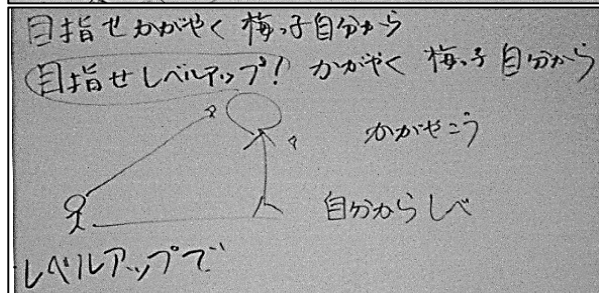 目指せかがやく梅っ子自分から
目指せレベルアップ! かがやく 梅っ子 自分から
かがやこう
自分からレベ
レベルアップで